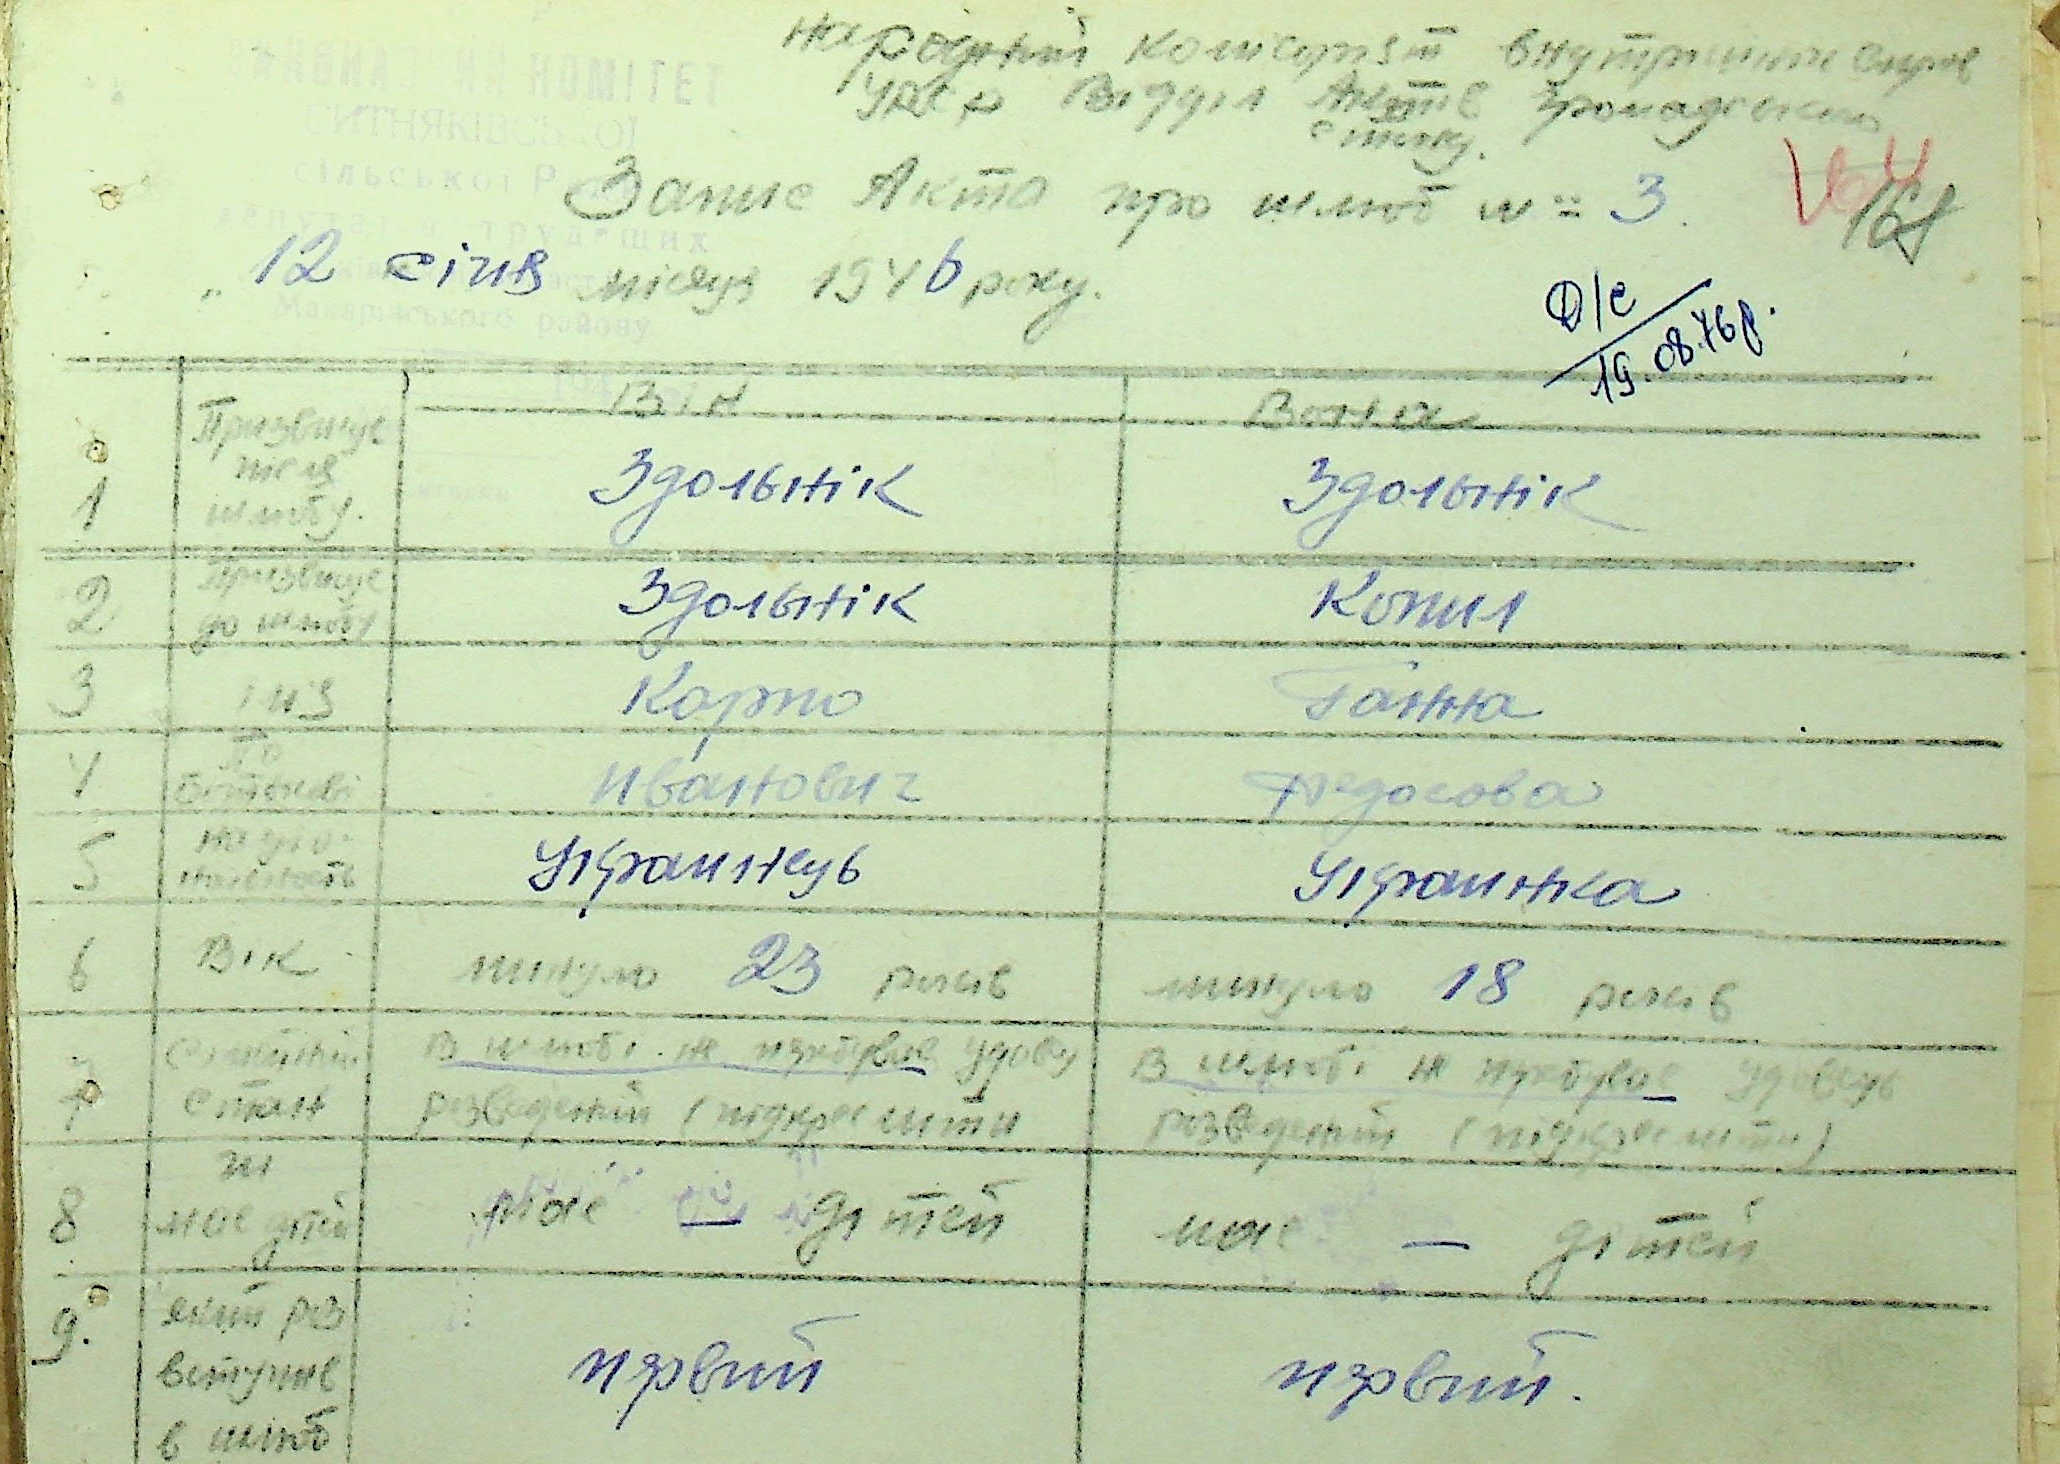 Народний Комісаріят Внутришних Справ
УРСР Відділ Актів Громадського
стану.
Запис Акта про шлюб № 3.
164
168
"12 січня місяця 1946 року.
Д/с
19.08.76р.
Він Вона
1 Призвище після шлюбу. Здольнік Здольнік
2 Призвище до шлюбу Здольнік Копил
3 імя Карпо Ганна
4 По батькові Иванович Федосова
5 Національність Украинець Украинка
6 Вік минуло 23 років минуло 18 років
7 Семейний стан В шлюбі не перебував удовец В шлюбі не перебував удовець
розведений (підкреслити розведений (підкреслити)
8 чи має дітей має — дітей має — дітей
9. який раз вступив в шлюб первий первий.
НОМІТЕТ
СИТНЯКІВСЬКОЇ
сільської
депутатів трудящих
Макарівського району